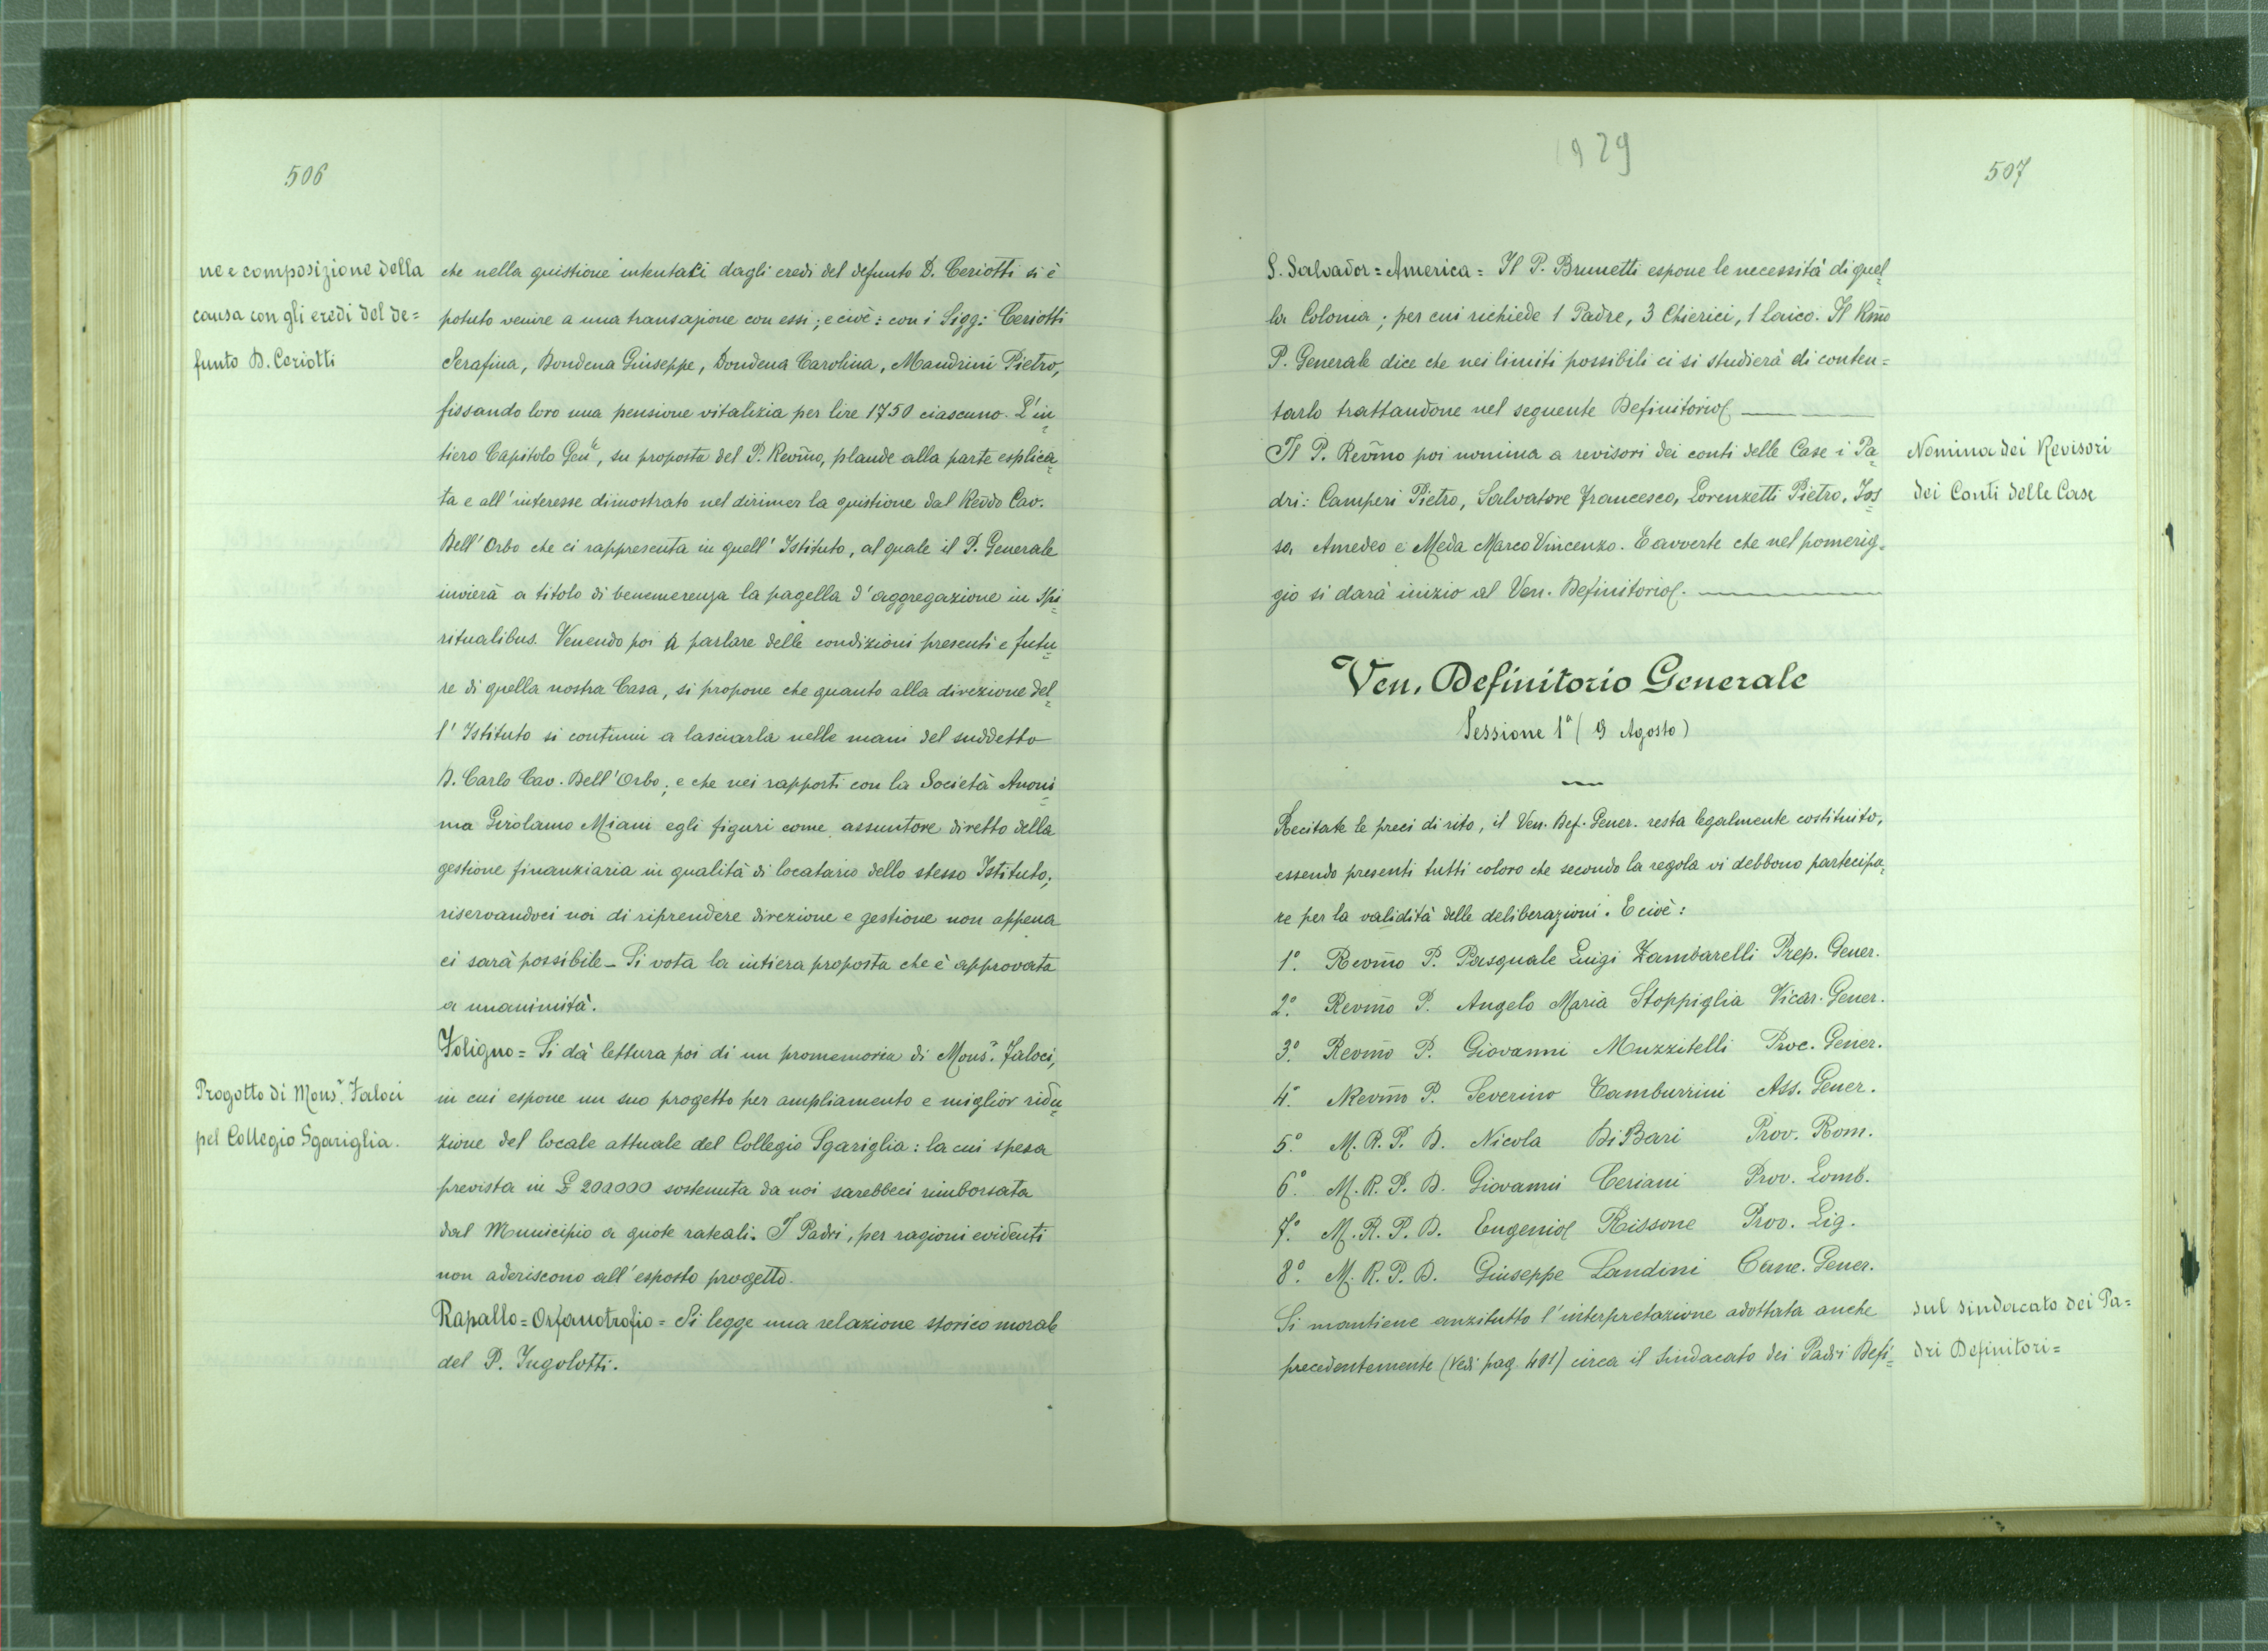 506
ne e composizione della
causa con gli eredi del de=
funto D. Ceriotti
che nella quistione intentati dagli eredi del defunto D. Ceriotti si è
potuto venire a una transazione con essi; e cioè: con i Sigg: Ceriotti
Serafina, Dondena Giuseppe, Dondena Carolina, Mandrini Pietro,
fissando loro una pensione vitalizia per lire 1750 ciascuno. L'in=
tiero Capitolo Genle, su proposta del P. Revmo, plaude alla parte esplica=
ta e all'interesse dimostrato nel dirimer la quistione dal Revdo Cav.
Dell'Orbo che ci rappresenta in quell'Istituto, al quale il P. Generale
invierà a titolo di benemerenza la pagella d'aggregazione in spi=
ritualibus. Venendo poi a parlare delle condizioni presenti e futu=
re di quella nostra Casa, si propone che quanto alla direzione del=
l'Istituto si continui a lasciarla nelle mani del suddetto
D. Carlo Cav. Dell'Orbo; e che nei rapporti con la Società Anoni=
ma Girolamo Miani egli figuri come assuntore diretto della
gestione finanziaria in qualità di locatario dello stesso Istituto;
riservandoci noi di riprendere direzione e gestione non appena
ci sarà possibile - Si vota la intiera proposta che è approvata
a unanimità.
Foligno = Si dà lettura poi di un promemoria di Monsr. Faloci,
Progotto di Monsr. Faloci
pel Collegio Sgariglia.
in cui espone un suo progetto per ampliamento e miglior ridu=
zione del locale attuale del Collegio Sgariglia: la cui spesa
prevista in £ 200000 sostenuta da noi sarebbeci rimborsata
dal Municipio a quote rateali. I Padri, per ragioni evidenti
non aderiscono all'esposto progetto.
Rapallo = Orfanotrofio = Si legge una relazione storico morale
del P. Ingolotti.
1929
507
S. Salvador = America = Il P. Brunetti espone le necessità di quel=
la Colonia; per cui richiede 1 Padre, 3 Chierici, 1 laico. Il Rmo
P. Generale dice che nei limiti possibili ci si studierà di conten=
tarlo trattandone nel seguente Definitorio
Il P. Revmo poi nomina a revisori dei conti delle Case i Pa=
dri: Camperi Pietro, Salvatore Francesco, Lorenzetti Pietro, Jos=
sa Amedeo e Meda Marco Vincenzo. E avverte che nel pomerig=
gio si darà inizio al Ven. Definitorio.
Nomina dei Revisori
dei Conti delle Case
Ven. Definitorio Generale
Sessione 1a (9 Agosto)
Recitate le preci di rito, il Ven. Def. Gener. resta legalmente costituito,
essendo presenti tutti coloro che secondo la regola vi debbono partecipa=
re per la validità delle deliberazioni. E cioè:
1º. Revmo P. Pasquale Luigi Zambarelli Prep. Gener.
2º. Revmo P. Angelo Maria Stoppiglia Vicar. Gener.
3º. Revmo P. Giovanni Muzzitelli Proc. Gener.
4º. Revmo P. Severino Tamburrini Ass. Gener.
5º M. R. P. D. Nicola Di Bari Prov. Rom.
6º. M. R. P. D. Giovanni Ceriani Prov. Lomb.
7º. M. R. P. D. Eugenio Rissone Prov. Lig.
8º. M. R. P. D. Giuseppe Landini Canc. Gener.
Si mantiene anzitutto l'interpretazione adottata anche
precedentemente (Vedi pag. 401) circa il Sindacato dei Padri Defi=
Sul sindacato dei Pa=
dri Definitori=